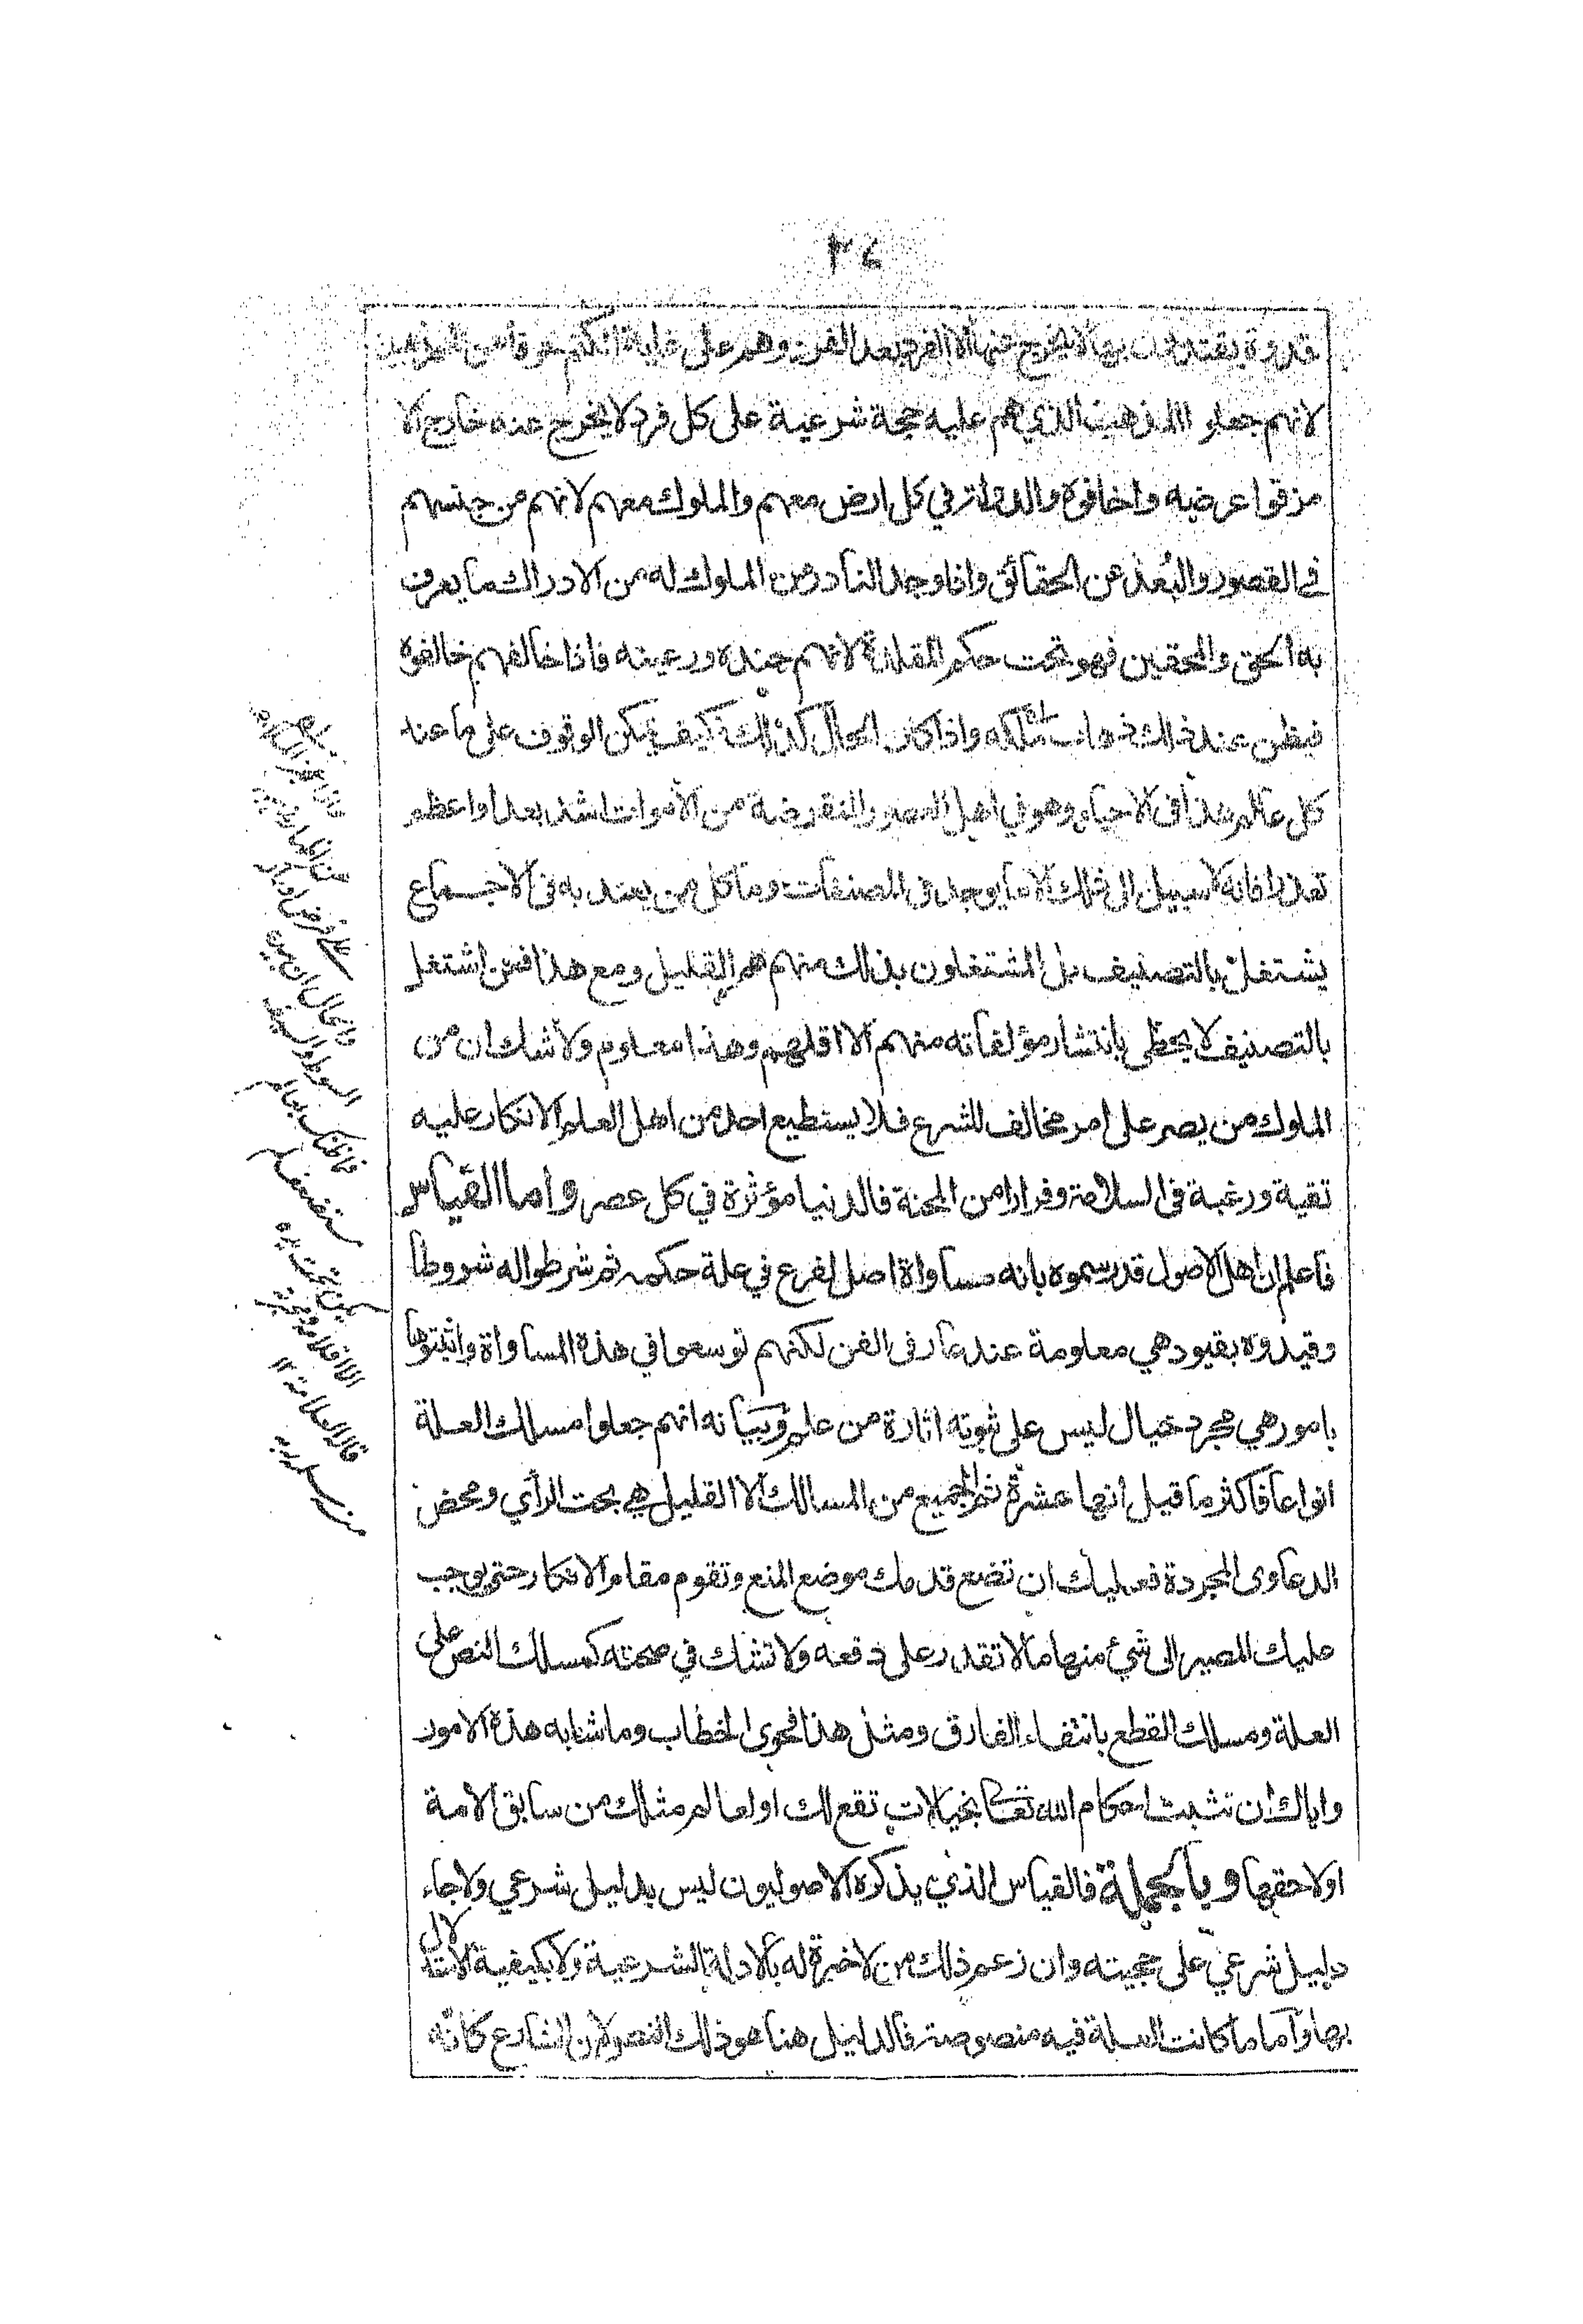 ٣٤
قدوة يقتدون بها لا يخرج عنها الا الفرد بعد الفرد وهم على غاية التكتم خوفا من المتمذهبين
لانهم جعلوا المذهب الذي هم عليه حجة شرعية على كل فرد لا يخرج عنه خارج الا
مزقوا عرضه واخافوه والدولة في كل ارض معهم والملوك معهم لانهم من جنسهم
فى القصور والبُعد عن الحقائق واذا وجد النادر من الملوك له من الادراك ما يعرف
به الحق والمحقين فهو تحت حكم المقلدة لانهم جنده ورعيته فاذا خالفهم خالفوه
فيظن عند ذلك ذهاب ملكه واذا كان الحال كذلك فكيف يمكن الوقوف على ما عند
كل عالم هذا فى الاحياء وهو في اهل العصور المنقرضة من الاموات اشد بعدا واعظم
تعذرا فانه لا سبيل الى ذلك الا ما يوجد في المصنفات وما كل من يعتد به فى الاجماع
يشتغل بالتصنيف بل المشتغلون بذلك منهم هم القليل ومع هذا فمن اشتغل
بالتصنيف لا يحظى بانتشار مؤلفاته منهم الا اقلهم وهذا معلوم ولا شك ان من
الملوك من يصر على امر مخالف للشرع فلا يستطيع احد من اهل العلم الانكار عليه
تقية ورغبة فى السلامة وفرارا من المحنة فالدنيا مؤثرة في كل عصر واما القياس
فاعلم ان اهل الاصول قد رسموه بانه مساواة اصل لفرع في علة حكمه ثم شرطوا له شروطا
وقيدوه بقيود هي معلومة عند عارفى الفن لكنهم توسعوا في هذه المساواة واثبتوها
بامور هي مجرد خيال ليس على ثبوته اثارة من علم وبيانه انهم جعلوا مسالك العلة
انواعا فاكثر ما قيل انها عشرة ثم الجميع من المسالك الا القليل هي بحت الرأي ومحض
الدعاوى المجردة فعليك ان تضع قدمك موضع المنع وتقوم مقام الانكار حتى يوجب
عليك المصير الى شيء منها ما لا تقدر على دفعه ولا تشك في صحته كمسلك النص على
العلة ومسلك القطع بانتفاء الفارق ومثل هذا فحوى الخطاب وما شابه هذه الامور
واياك ان تثبت احكام الله تعالى بخيالات تقع لك او لعالم مثلك من سابق الامة
اولاحقها وبالجملة فالقياس الذي يذكره الاصوليون ليس بدليل شرعي ولا جاء
دليل شرعي على حجيته وان زعم ذلك من لا خبرة له بالادلة الشرعية ولا بكيفية الاستدلال
بها واما ما كانت العلة فيه منصوصة فالدليل هنا هو ذلك النص لان الشارع كانه
على فرض
والحال ان
فما ظنك بعالم
مستضعف
تحت يده
قاله العلامة ١٢